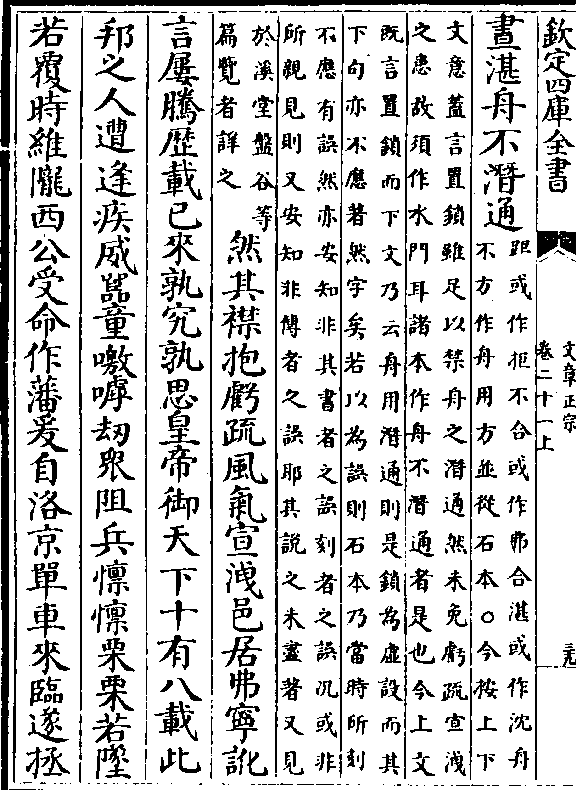 欽定四庫全書
文章正宗
卷二十一上
晝湛舟不潛通
距或作拒不合或作弗合湛或作沈舟
不方作舟用方並從石本○今按上下
文意蓋言置鎖雖足以禁舟之潛通然未免虧疏宣洩
之患故須作水門耳諸本作舟不潛通者是也今上文
既言置鎖而下文乃云舟用潛通則是鎖為虛設而其
下句亦不應著然字矣若以為誤則石本乃當時所刻
不應有誤然亦安知非其書者之誤刻者之誤况或非
所親見則又安知非傳者之誤耶其說之未盡著又見
於溪堂盤谷等
篇覽者詳之
然其襟抱虧疏風氣宣洩邑居弗寧訛
言屢騰歷載已來孰究孰思皇帝御天下十有八載此
邦之人遭逢疾威嚚童噭嘑刼衆阻兵懍懍栗栗若墜
若覆時維隴西公受命作藩爰自洛京單車來臨遂拯